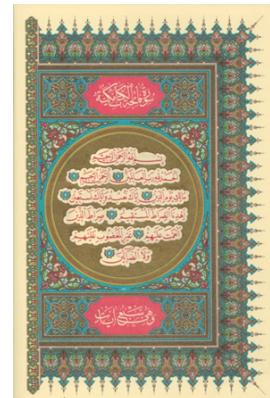 سورة فاتحة الكتاب مكية
بسم الله الرحمن الرحيم
الحمد لله رب العلمين الرحمن الرحيم
ملك يوم الدين إياك نعبد وإياك نستعين
اهدنا الصراط المستقيم صراط الذين
أنعمت عليهم غير المغضوب عليهم
ولا الضالين
وهي سبع آيات